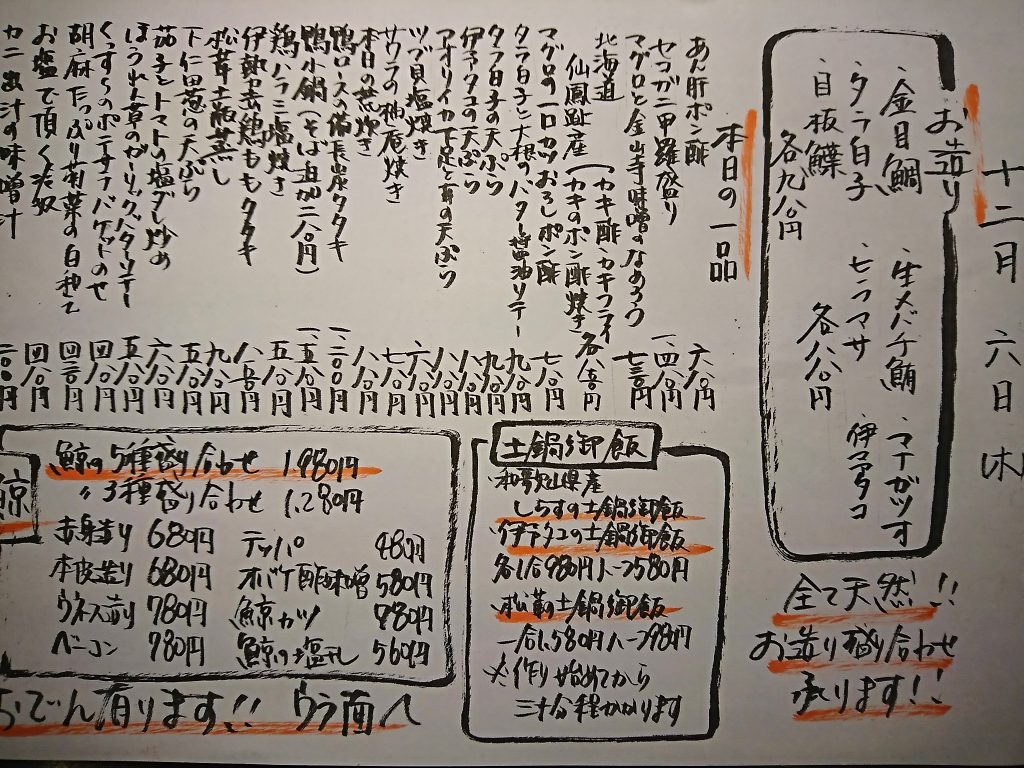 十二月 六日 木
お造り
・金目鯛 ・生メバチ鮪 ・マナガツオ
・タラ白子 ・ヒラマサ ・伊予タコ
・目板鰈
各九八〇円 各八八〇円
全て天然!!
お造り盛り合わせ
承ります!!
本日の一品
あん肝ポン酢 六八〇円
セコガニ甲羅盛り 一、四八〇円
マグロと金山寺味噌のなめろう 七三〇円
北海道
仙鳳趾産 (カキ酢・カキフライ
(カキのポン酢焼き 各八三〇円
マグロの一口カツおろしポン酢 七八〇円
タラ白子と大根のバター醤油ソテー 九八〇円
タラ白子の天ぷら 九八〇円
伊予タコの天ぷら 八八〇円
アオリイカ下足と耳の天ぷら 八八〇円
ツブ貝塩焼き 六八〇円
サワラの柚庵焼き 七八〇円
本日の煮炊き 八八〇円
鴨ロースの備長炭タタキ 一、二〇〇円
鴨小鍋(そば追加二八〇円) 一、五八〇円
鶏ハラミ塩焼き 五八〇円
伊勢赤鶏ももタタキ 八八〇円
松茸土瓶蒸し 九八〇円
下仁田葱の天ぷら 五八〇円
茄子とトマトの塩ダレ炒め 六八〇円
ほうれん草のガーリックバターソテー 五八〇円
くんすらのポテサラバケットのせ 四八〇円
胡麻たっぷり青菜の白和え 四三〇円
お塩で頂く冷奴 四八〇円
カニ出汁の味噌汁 二〇〇円
土鍋御飯
・和歌山県産
しらすの土鍋御飯
・伊予タコの土鍋御飯
各1合980円ハーフ580円
・松茸の土鍋御飯
一合1,580円ハーフ980円
※作り始めてから
三十分程かかります
鯨
鯨の5種盛り合わせ 1,980円
〃3種盛り合わせ 1,280円
赤身造り 680円 テッパ 480円
本皮造り 680円 オバケ酢味噌 580円
ウネス造り 780円 鯨カツ 780円
ベーコン 780円 鯨の塩干し 560円
おでん有ります!! ウラ面へ